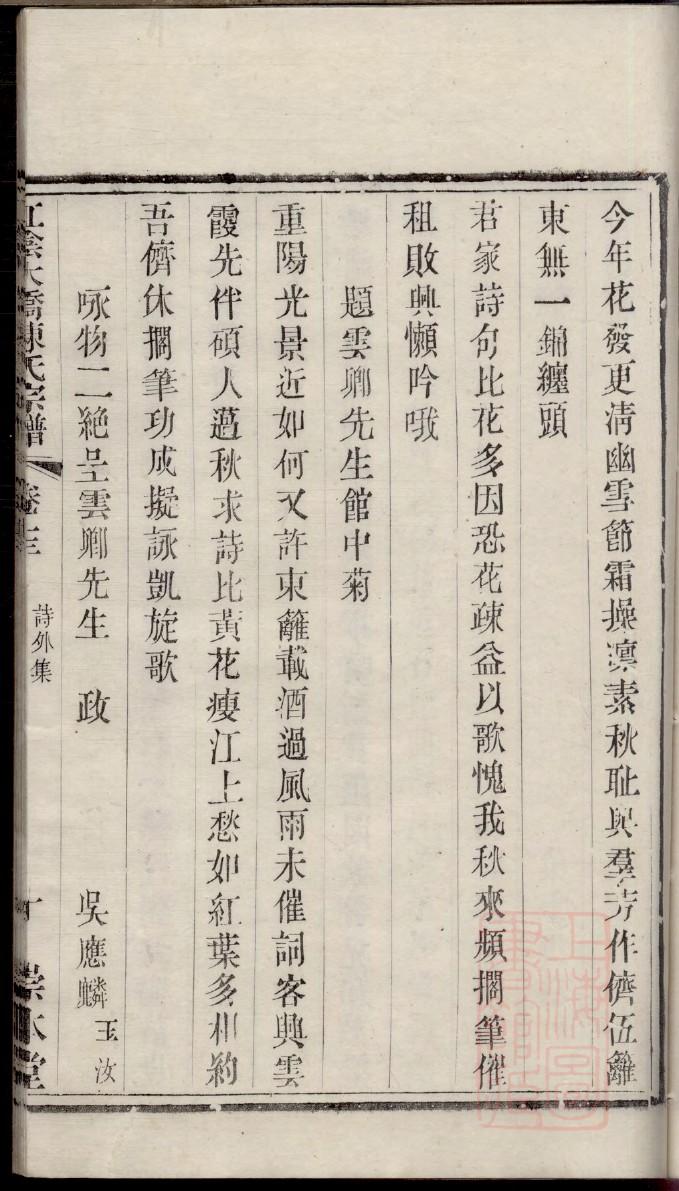 今年花發更清幽雪節霜操凛素秋耻與羣芳作儕伍籬
東無一錦纏頭
君家詩句比花多因恐花疎益以歌愧我秋來頻擱筆催
租敗興懶吟哦
題雲卿先生館中菊
重陽光景近如何又許東籬載酒過風雨未催詞客興雲
霞先伴碩人薖秋求詩比黃花瘦江上愁如紅葉多相約
吾儕休擱筆功成擬詠凱旋歌
咏物二絶呈雲卿先生 政 吳應麟 玉汝
江陰大橋陳氏宗譜 卷 詩外集 十 崇本堂
上海圖書館藏